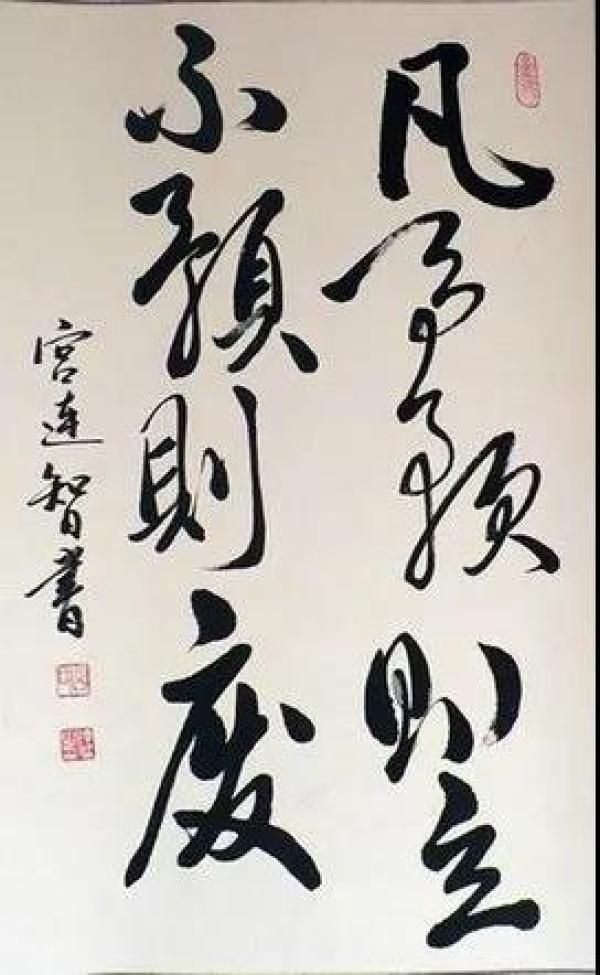 凡事预则立
不預則废
宫连智书